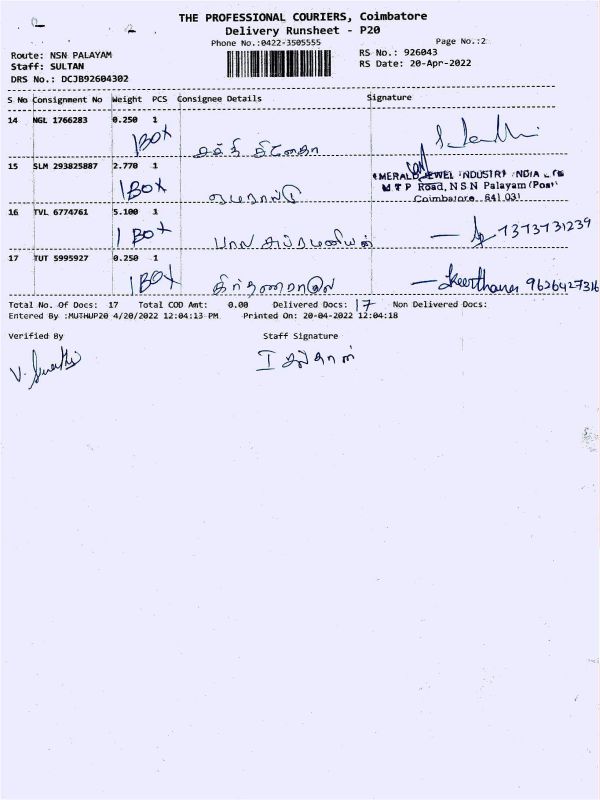 THE PROFESSIONAL COURIERS, Coimbatore
Delivery Runsheet - P20
Phone No.:0422-3505555
Page No.:2
Route: NSN PALAYAM
RS No.: 926043
Staff: SULTAN
RS Date: 20-Apr-2022
DRS No.: DCJB92604302
S No Consignment No Weight PCS Consignee Details Signature
14 NGL 1766283 0.250 1
1 BOX
15 SLM 293825887 2.770 1
1 BOX
EMERALD JEWEL INDUSTRY INDIA
M T P Road, N S N Palayam (Post)
Coimbatore 641 031
16 TVL 6774761 5.100 1
1 BOX பால சுப்ரமணியன் 7373731239
17 TUT 5995927 0.250 1
1 BOX Keerthana 9626427316
Total No. Of Docs: 17 Total COD Amt: 0.00 Delivered Docs: 17 Non Delivered Docs:
Entered By :MUTHUP20 4/20/2022 12:04:13 PM Printed On: 20-04-2022 12:04:18
Verified By Staff Signature